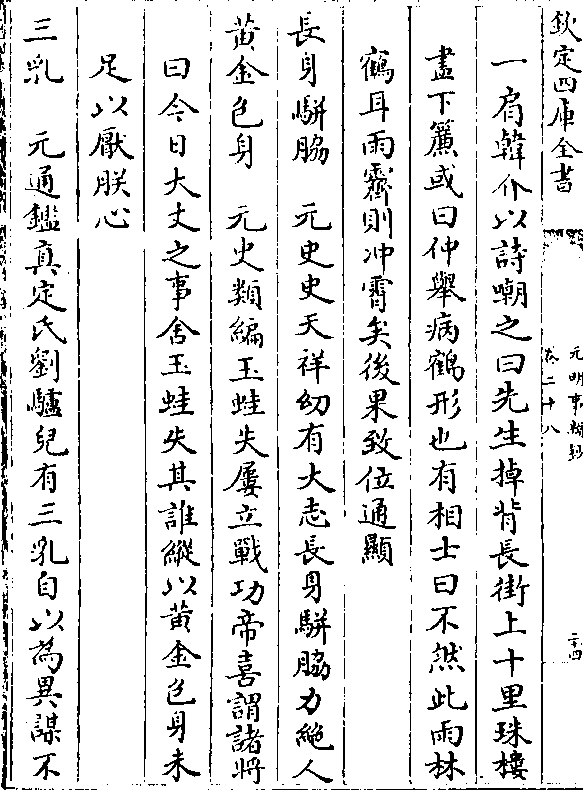 欽定四庫全書
元明事類鈔
卷二十八
二十四
一肩韓介以詩嘲之曰先生掉背長街上十里珠樓
盡下簾或曰仲舉病鶴形也有相士曰不然此雨林
鶴耳雨霽則冲霄矣後果致位通顯
長身駢脇　元史史天祥幼有大志長身駢脇力絶人
黄金色身　元史類編玉蛙失屢立戰功帝喜謂諸將
曰今日大丈之事舍玉蛙失其誰縱以黄金色身未
足以厭朕心
三乳　元通鑑真定氏劉驢兒有三乳自以為異謀不